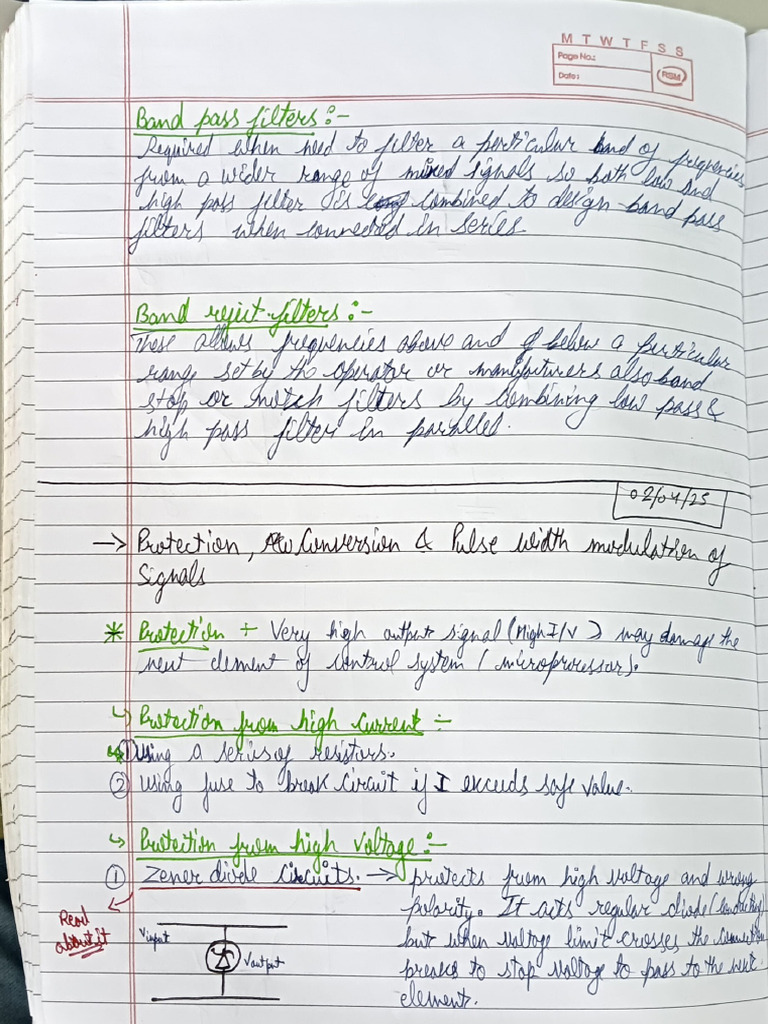 M T W T F S S
Page No.:
Date:
RSM
Band pass filters :-
Required when need to filter a perticular band of frequencies
from a wider range of mixed signals so both low and
high pass filter is combined to design band pass
filters when connected in series
Band reject filters :-
These allows frequencies above and below a perticular
range set by the operator or manufacturers also band
stop or notch filters by combining low pass &
high pass filter in parallel.
02/04/25
→ Protection, Conversion & Pulse width modulation of
Signals
* Protection ÷ Very high output signal (High I/V) may damage the
next element of control system (microprocessor).
↳ Protection from high current :-
① Using a series of resistors.
② Using fuse to break circuit if I exceeds safe value.
↳ Protection from high voltage :-
① Zener diode Circuits. → protects from high voltage and wrong
polarity. It acts regular diode (conducting)
but when voltage limit crosses the connection
breaks to stop voltage to pass to the next
element.
Read
about it
Vinput
Voutput